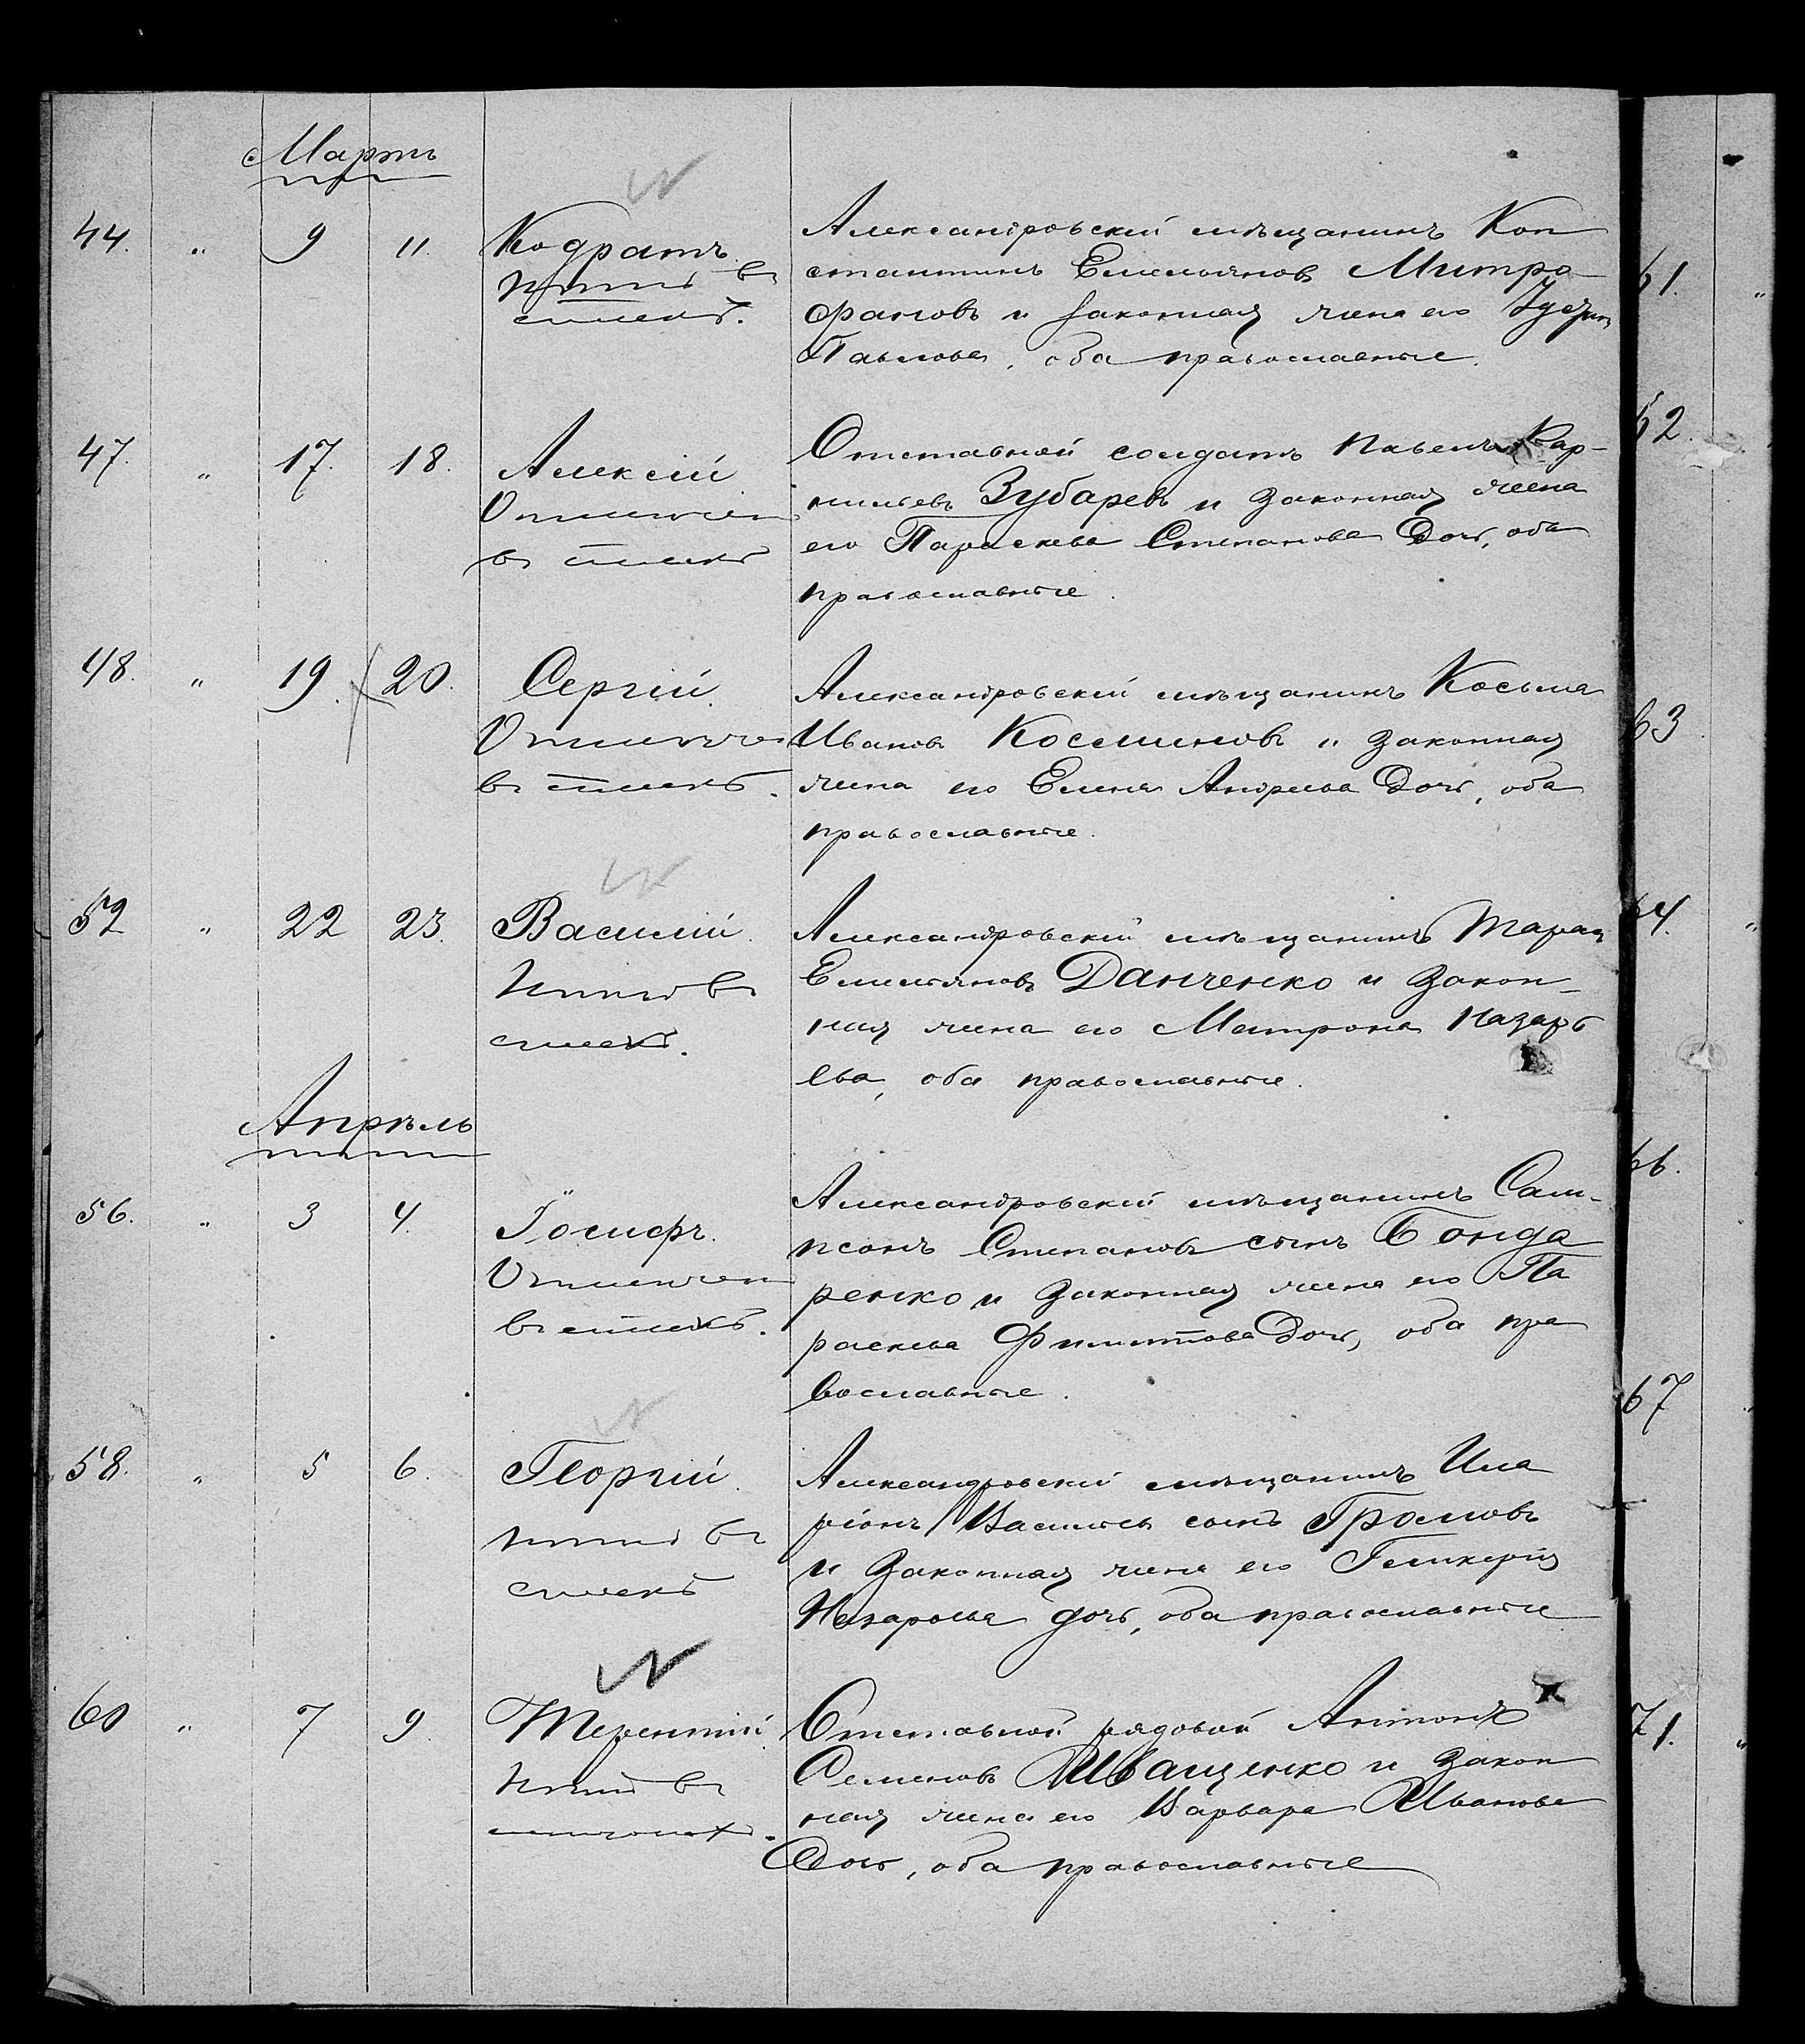 Мартъ
44. " 9 11. Кодратъ.
Александровскій мѣщанинъ Кон
стантинъ Емельяновъ Митро-
фановъ и законная жена его
Павлова, оба православные.
47. " 17. 18. Алексій
Отмѣчен
въ спискѣ
Отставной солдатъ Павелъ Кар-
ниліевъ Зубаревъ и законная жена
его Параскева Степанова дочь, оба
православные.
48. " 19. 20. Сергій.
Отмѣчен
въ спискѣ.
Александровскій мѣщанинъ Косьма
Ивановъ Косминовъ и законная
жена его Елена Андреева дочь, оба
православные.
52 " 22 23. Василій.
Нѣтъ въ
спискѣ.
Александровскій мѣщанинъ Тарас
Емельяновъ Данченко и закон-
ная жена его Матрона Назарь
ева, оба православные.
Апрѣль
56. " 3 4. Іосифъ.
Отмѣчен
въ спискѣ.
Александровскій мѣщанинъ Сам-
псонъ Степановъ сынъ Бонда
ренко и законная жена его Па
раскева Филиппова дочь, оба пра
вославные.
58. " 5 6. Георгій.
Нѣтъ въ
спискѣ
Александровскій мѣщанинъ Ила
ріонъ Васильевъ сынъ Громовъ
и законная жена его Гликерія
Назарьева дочь, оба православные
60 " 7 9. Терентій.
Нѣтъ въ
Отставной рядовой Антонъ
Семеновъ Иващенко и закон
ная жена его Варвара Иванова
дочь, оба православные
61. "
62.
63.
64. "
66.
67 "
71. "